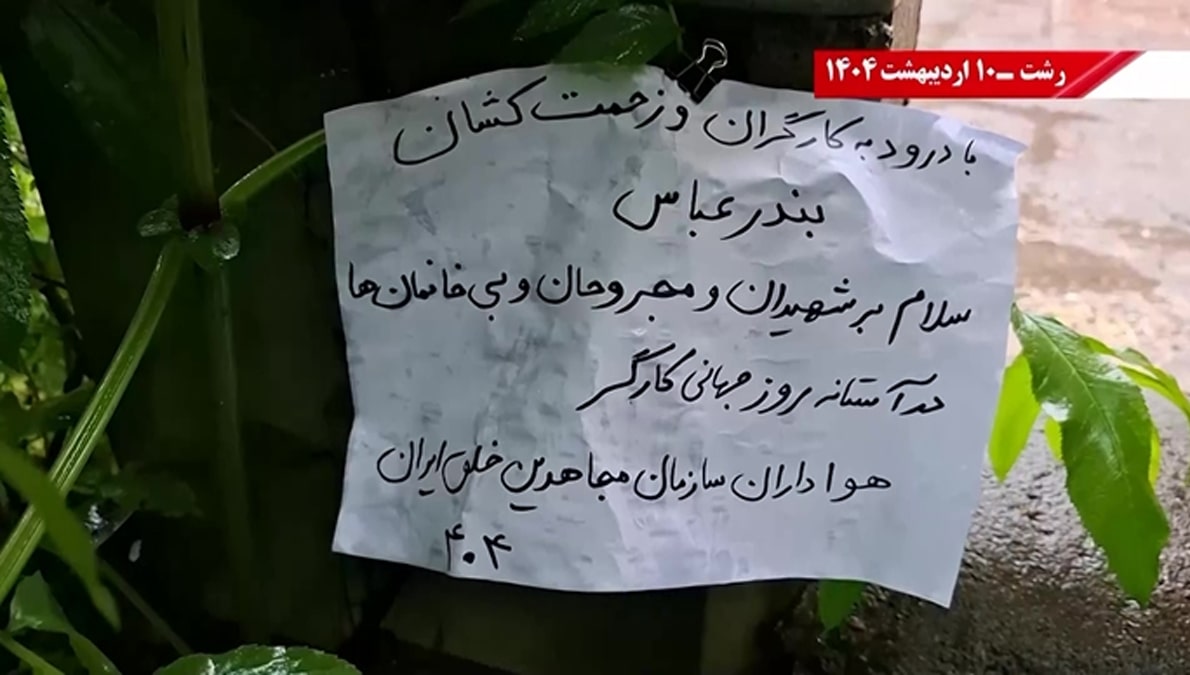 رشت ــ۱۰ اردیبهشت ۱۴۰۴
با درود به کارگران و زحمت کشان
بندرعباس
سلام بر شهیدان و مجروحان و بی خانمان ها
در آستانه روز جهانی کارگر
هواداران سازمان مجاهدین خلق ایران
۴۰۴